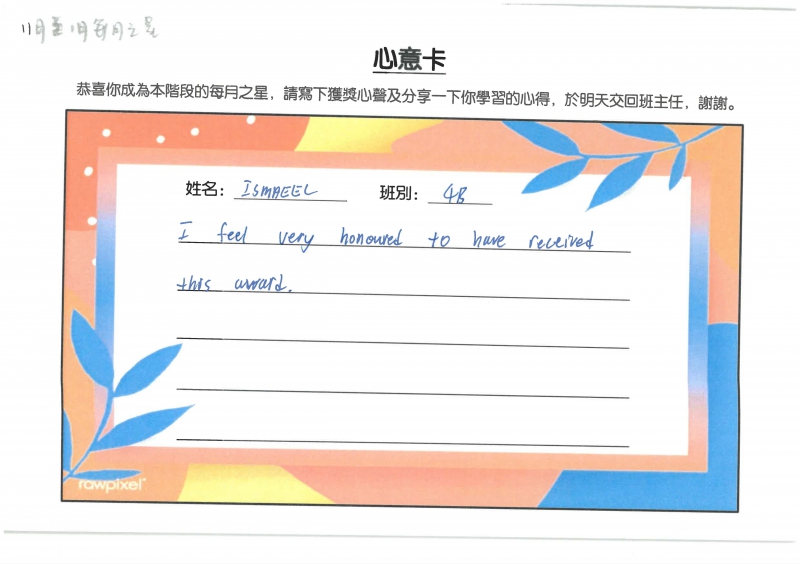 11月至1月每月之星
心意卡
恭喜你成為本階段的每月之星，請寫下獲獎心聲及分享一下你學習的心得，於明天交回班主任，謝謝。
姓名： ISMAEEL 班別： 4B
I feel very honoured to have received
this award.
rawpixel